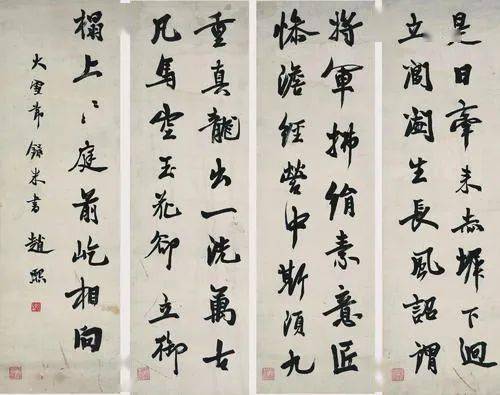 是日牽来赤墀下迥
立閶闔生長風詔謂
将軍拂絹素意匠
惨澹經營中斯須九
重真龍出一洗萬古
凡馬空玉花卻立御
榻上〻庭前屹相向
大雪 米書 趙熙